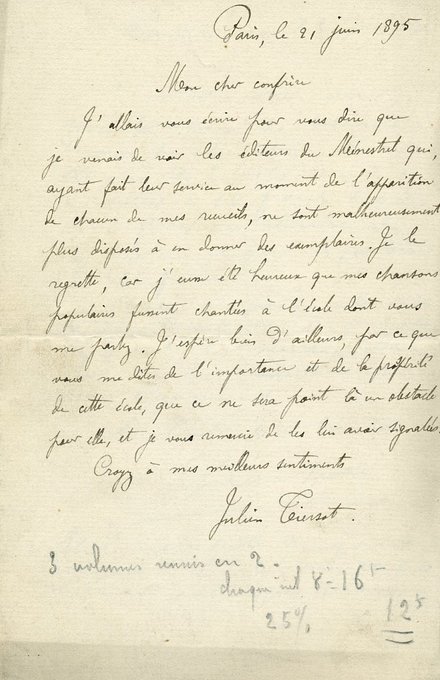 Paris, le 21 juin 1895
Mon cher confrère
J'allais vous écrire pour vous dire que
je venais de voir les éditeurs du Ménestrel qui,
ayant fait leur service au moment de l'apparition
de chacun de mes recueils, ne sont malheureusement
plus disposés à en donner des exemplaires. Je le
regrette, car j'eusse été heureux que mes chansons
populaires fussent chantées à l'école dont vous
me parlez. J'espère bien d'ailleurs, par ce que
vous me dites de l'importance et de la prospérité
de cette école, que ce ne sera point là un obstacle
pour elle, et je vous remercie de les lui avoir signalées.
Croyez à mes meilleurs sentiments
Julien Tiersot.
3 volumes réunis en 2.
chaque net 8 = 16 f
25% 12 f